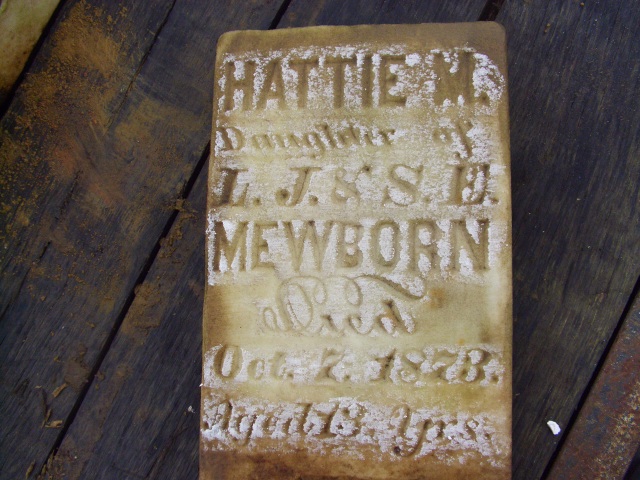 HATTIE M.
Daughter of
L. J. & S. E.
MEWBORN
Died
Oct. 7. 1873.
Aged 13 Yrs.